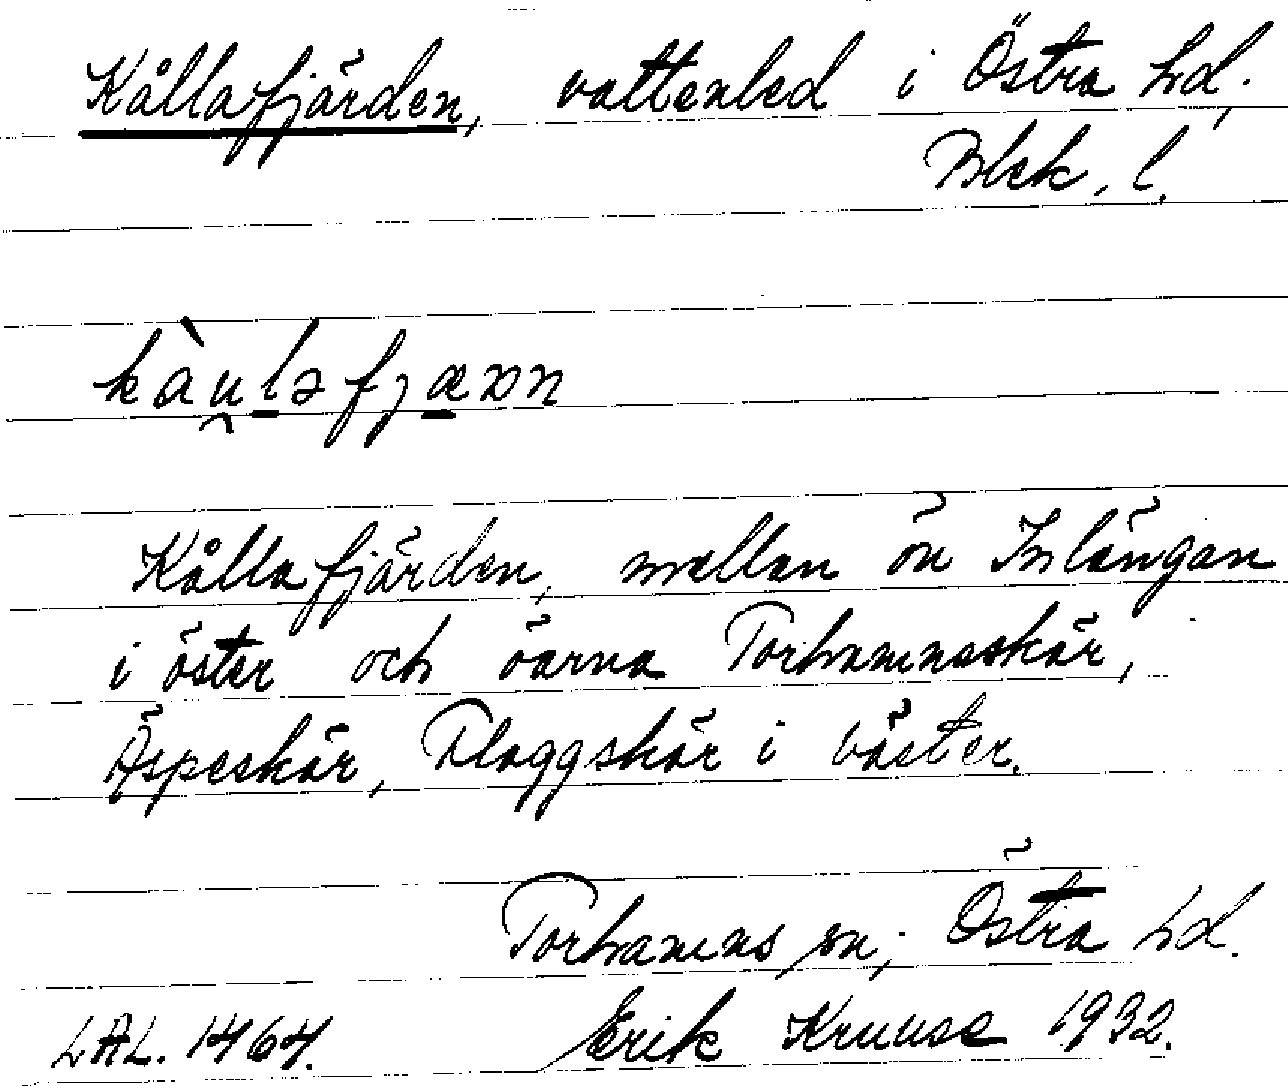 Kållafjärden, vattenled i Östra hd,
Blek. l.
kàu̯lafjæᴅn
Kållafjärden, mellan ön Inlängan
i öster och öarna Torhamnsskär,
Äspeskär, Flaggskär i väster.
Torhamns sn; Östra hd.
LAL. 1464. Erik Kruuse 1932.